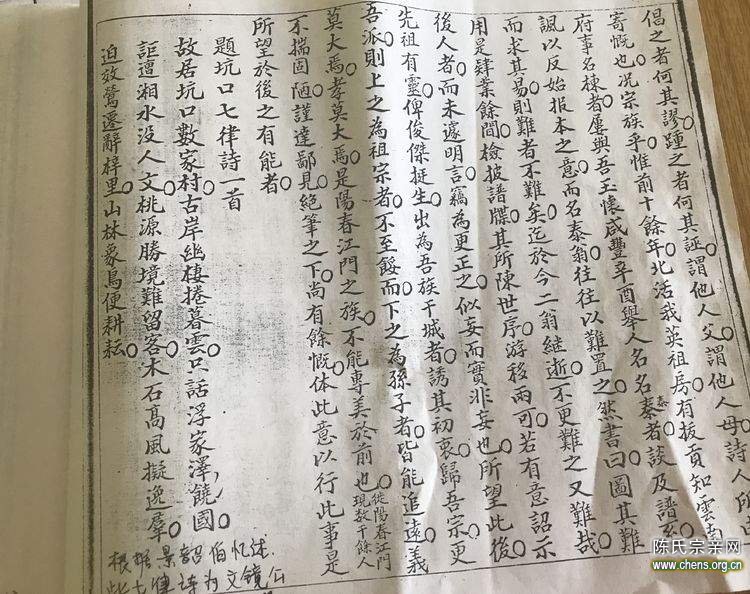 倡之者何其謬踵之者何其誣謂他人父謂他人母詩人所
寄慨也况宗族乎惟前十餘年北活我英祖房有拔貢知雲南
府事名棟者屢與吾玉懷咸豐辛酉舉人名名泰者談及譜系
諷以反始报本之意而名泰翁往往以難置之然書曰圖其難
而求其易則難者不難矣迄於今二翁継逝不更難之又難哉
用是肆業餘間檢披譜牒其所陳世序游移兩可若有意詔示
後人者而未遽明言竊為更正之似妄而實非妄也所望此後
先祖有靈俾俊傑挺生出為吾族干城者誘其初衷歸吾宗更
吾派則上之為祖宗者不至餒而下之為孫子者皆能追遠義
莫大焉孝莫大焉是陽春江門之族不能專美於前也從陽春江門現數千餘人
不揣固陋謹達鄙見絕筆之下尚有餘慨体此意以行此事是
所望於後之有能者
題坑口七律詩一首
故居坑口數家村古岸幽棲捲暮雲只話浮家澤饒國
詎遭湘水没人文桃源勝境難留客木石高風擬逸羣
迫效鶯遷辭梓里山林象鳥便耕耘
根据景韶伯忆述
此七律诗为文镜公
陈氏宗亲网
www.chens.org.cn